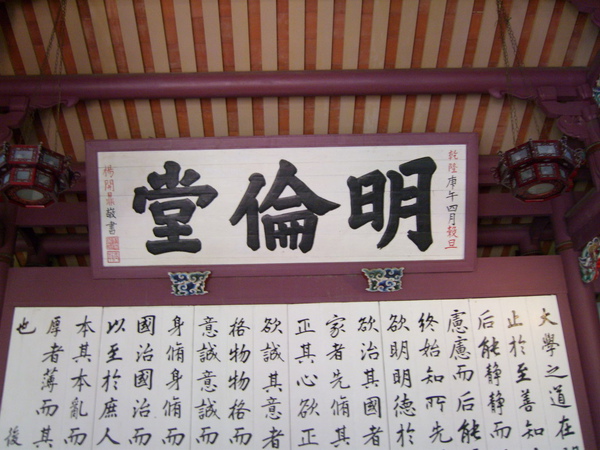 乾隆庚午四月穀旦
明倫堂
楊開鼎敬書
大學之道在
止於至善知
后能靜靜而
慮慮而后能
終始知所先
欲明明德於
欲治其國者
家者先脩其
正其心欲正
欲誠其意者
格物物格而
意誠意誠而
身脩身脩而
國治國治而
以至於庶人
本其本亂而
厚者薄而其
也
後